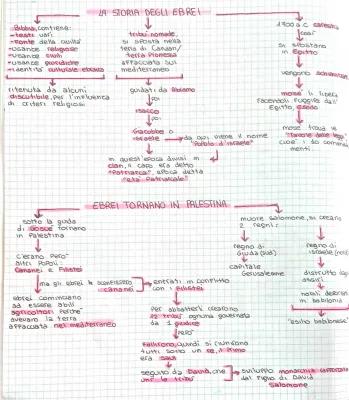 LA STORIA DEGLI EBREI
Bibbia, contiene:
- testi vari
- fonte della civiltà
- usanze religiose
- usanze civili
- usanze giuridiche
- identità culturale ebraica
ritenuta da alcuni
discutibile, per l'influenza
di criteri religiosi
tribù nomade,
si sposta nella
terra di Canaan/
terra Promessa
affacciata sul
mediterraneo
guidati da Abramo
poi
Isacco
poi
Giacobbe o
Israele
da qui viene il nome
"Popolo d'Israele"
in quest'epoca divisi in
clan, il capo era detto
"Patriarca", epoca detta
"età Patriarcale"
1700 a.C. carestia
così
si spostano
in Egitto
vengono schiavizzati
mosè li libera
facendoli fuggire dall'
Egitto, esodo
mosè trova le
"tavole della legge"
cioè i 10 comanda
menti
EBREI TORNANO IN PALESTINA
sotto la guida
di Giosuè tornano
in Palestina
c'erano però
altri popoli
Cananei e Filistei
ma gli ebrei sconfissero
i cananei
entrati in conflitto
con i Filistei
ebrei cominciano
ad essere abili
agricoltori perché
avevano la terra
affacciata nel mediterraneo
per abbatterli crearono
12 tribù ognuna governata
da 1 giudice
però
fallirono, quindi si riunirono
tutti sotto un re, il primo
era Saul
seguito da David, che
unì le tribù
sviluppò monarchia
dal figlio di David
Salomone
muore salomone, si creano
2 regni:
regno di
Giuda (sud)
capitale
Gerusalemme
regno di
Israele (nord)
distrutto dagli
assiri
in babilonia
"esilio babilonese"